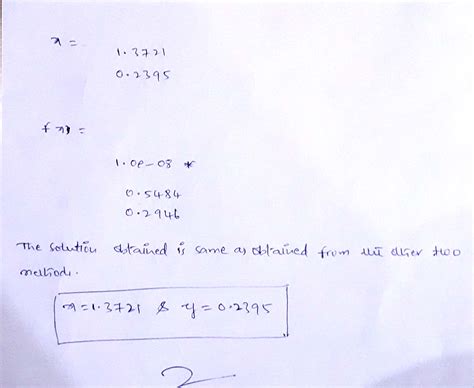 x =
1.3721
0.2395
f x) =
1.0e-08 *
0.5484
0.2946
The solution obtained is same as obtained from the other two
methods.
x=1.3721 & y=0.2395
2